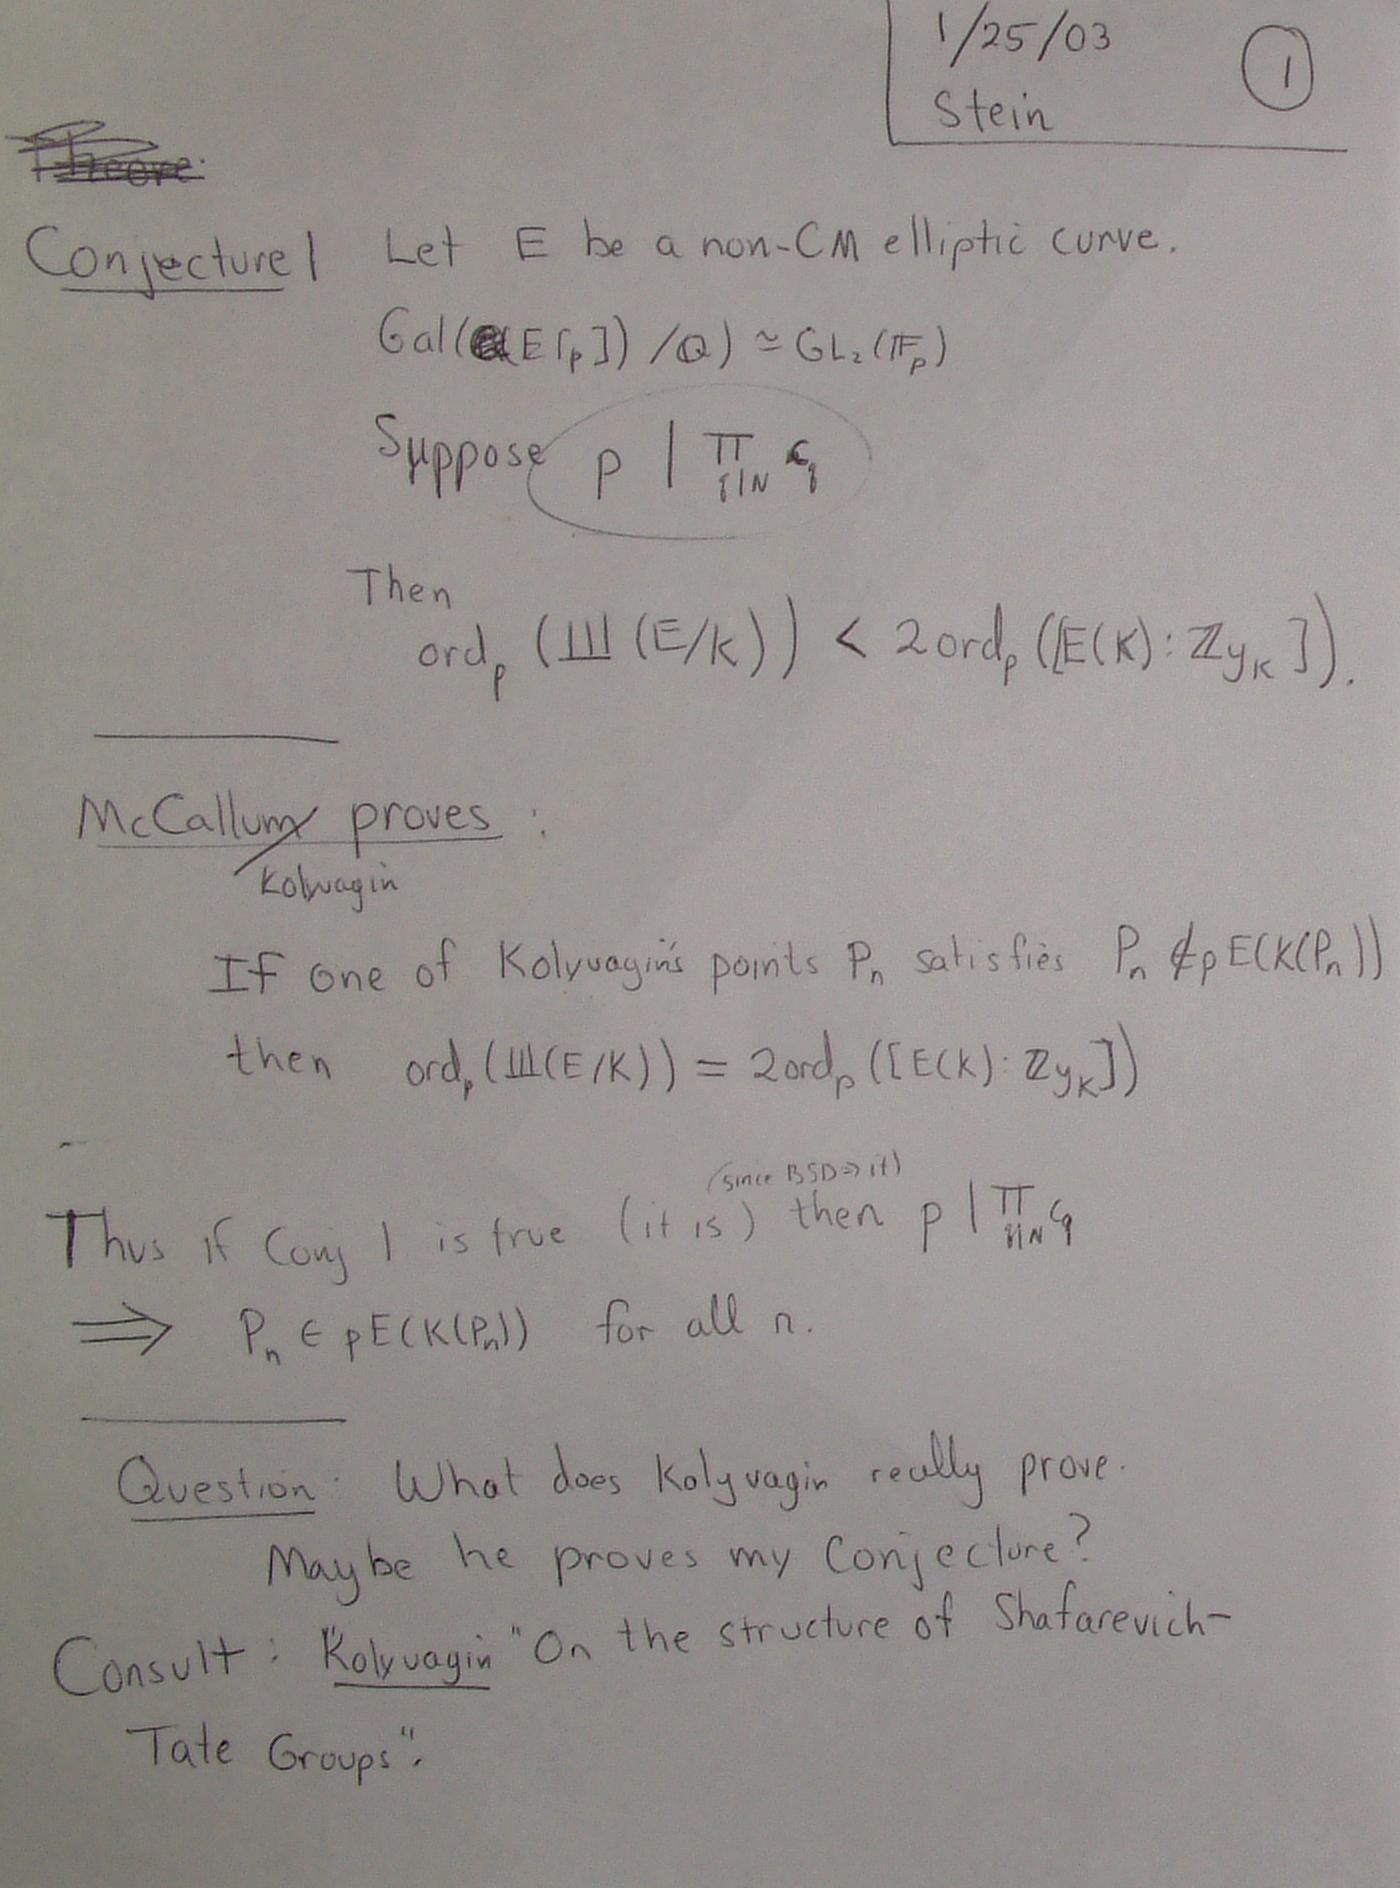 1/25/03 1
Stein
Theore
Conjecture 1 Let E be a non-CM elliptic curve.
Gal(Q(E[p])/Q) ≃ GL₂(𝔽_p)
Suppose p | ∏_{q|N} c_q
Then
ord_p (Ш(E/K)) < 2 ord_p ([E(K) : ℤy_K]).
McCallum proves :
/Kolyvagin
If one of Kolyvagin's points P_n satisfies P_n ∉ pE(K(P_n))
then ord_p (Ш(E/K)) = 2 ord_p ([E(K) : ℤy_K])
(since BSD ⇒ it)
Thus if Conj 1 is true (it is) then p | ∏_{q|N} c_q
⟹ P_n ∈ pE(K(P_n)) for all n.
Question: What does Kolyvagin really prove.
Maybe he proves my Conjecture?
Consult: "Kolyvagin "On the structure of Shafarevich-
Tate Groups".